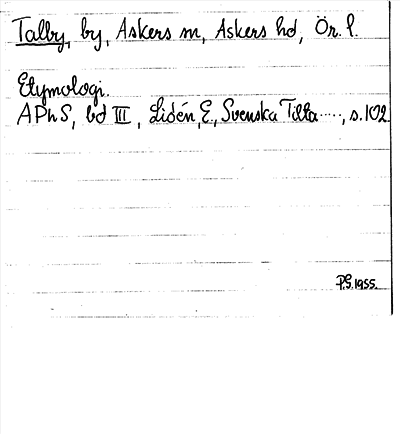 Talby, by, Askers sn, Askers hd, Ör. l.
Etymologi.
APhS, bd III, Lidén, E., Svenska Tilta....., s. 102
P.S. 1955.